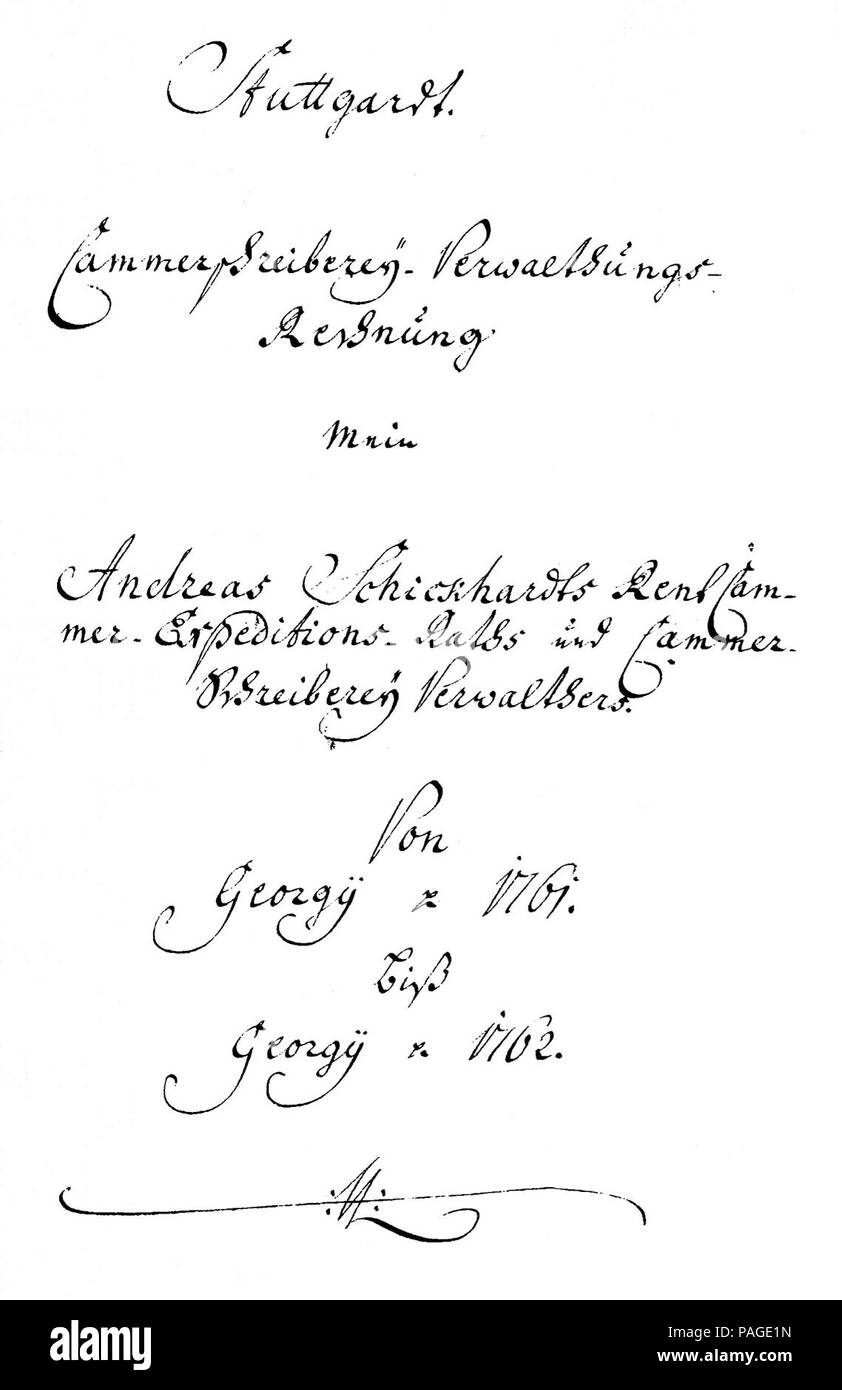 Stuttgardt.
Cammerschreiberey- Verwalthungs-
Rechnung
Mein
Andreas Schickhardts Rent Cam-
mer- Expeditions- Raths und Cammer-
Schreiberey Verwalthers.
Von
Georgÿ 1761.
biß
Georgÿ 1762.
alamy
Image ID: PAGE1N
www.alamy.com